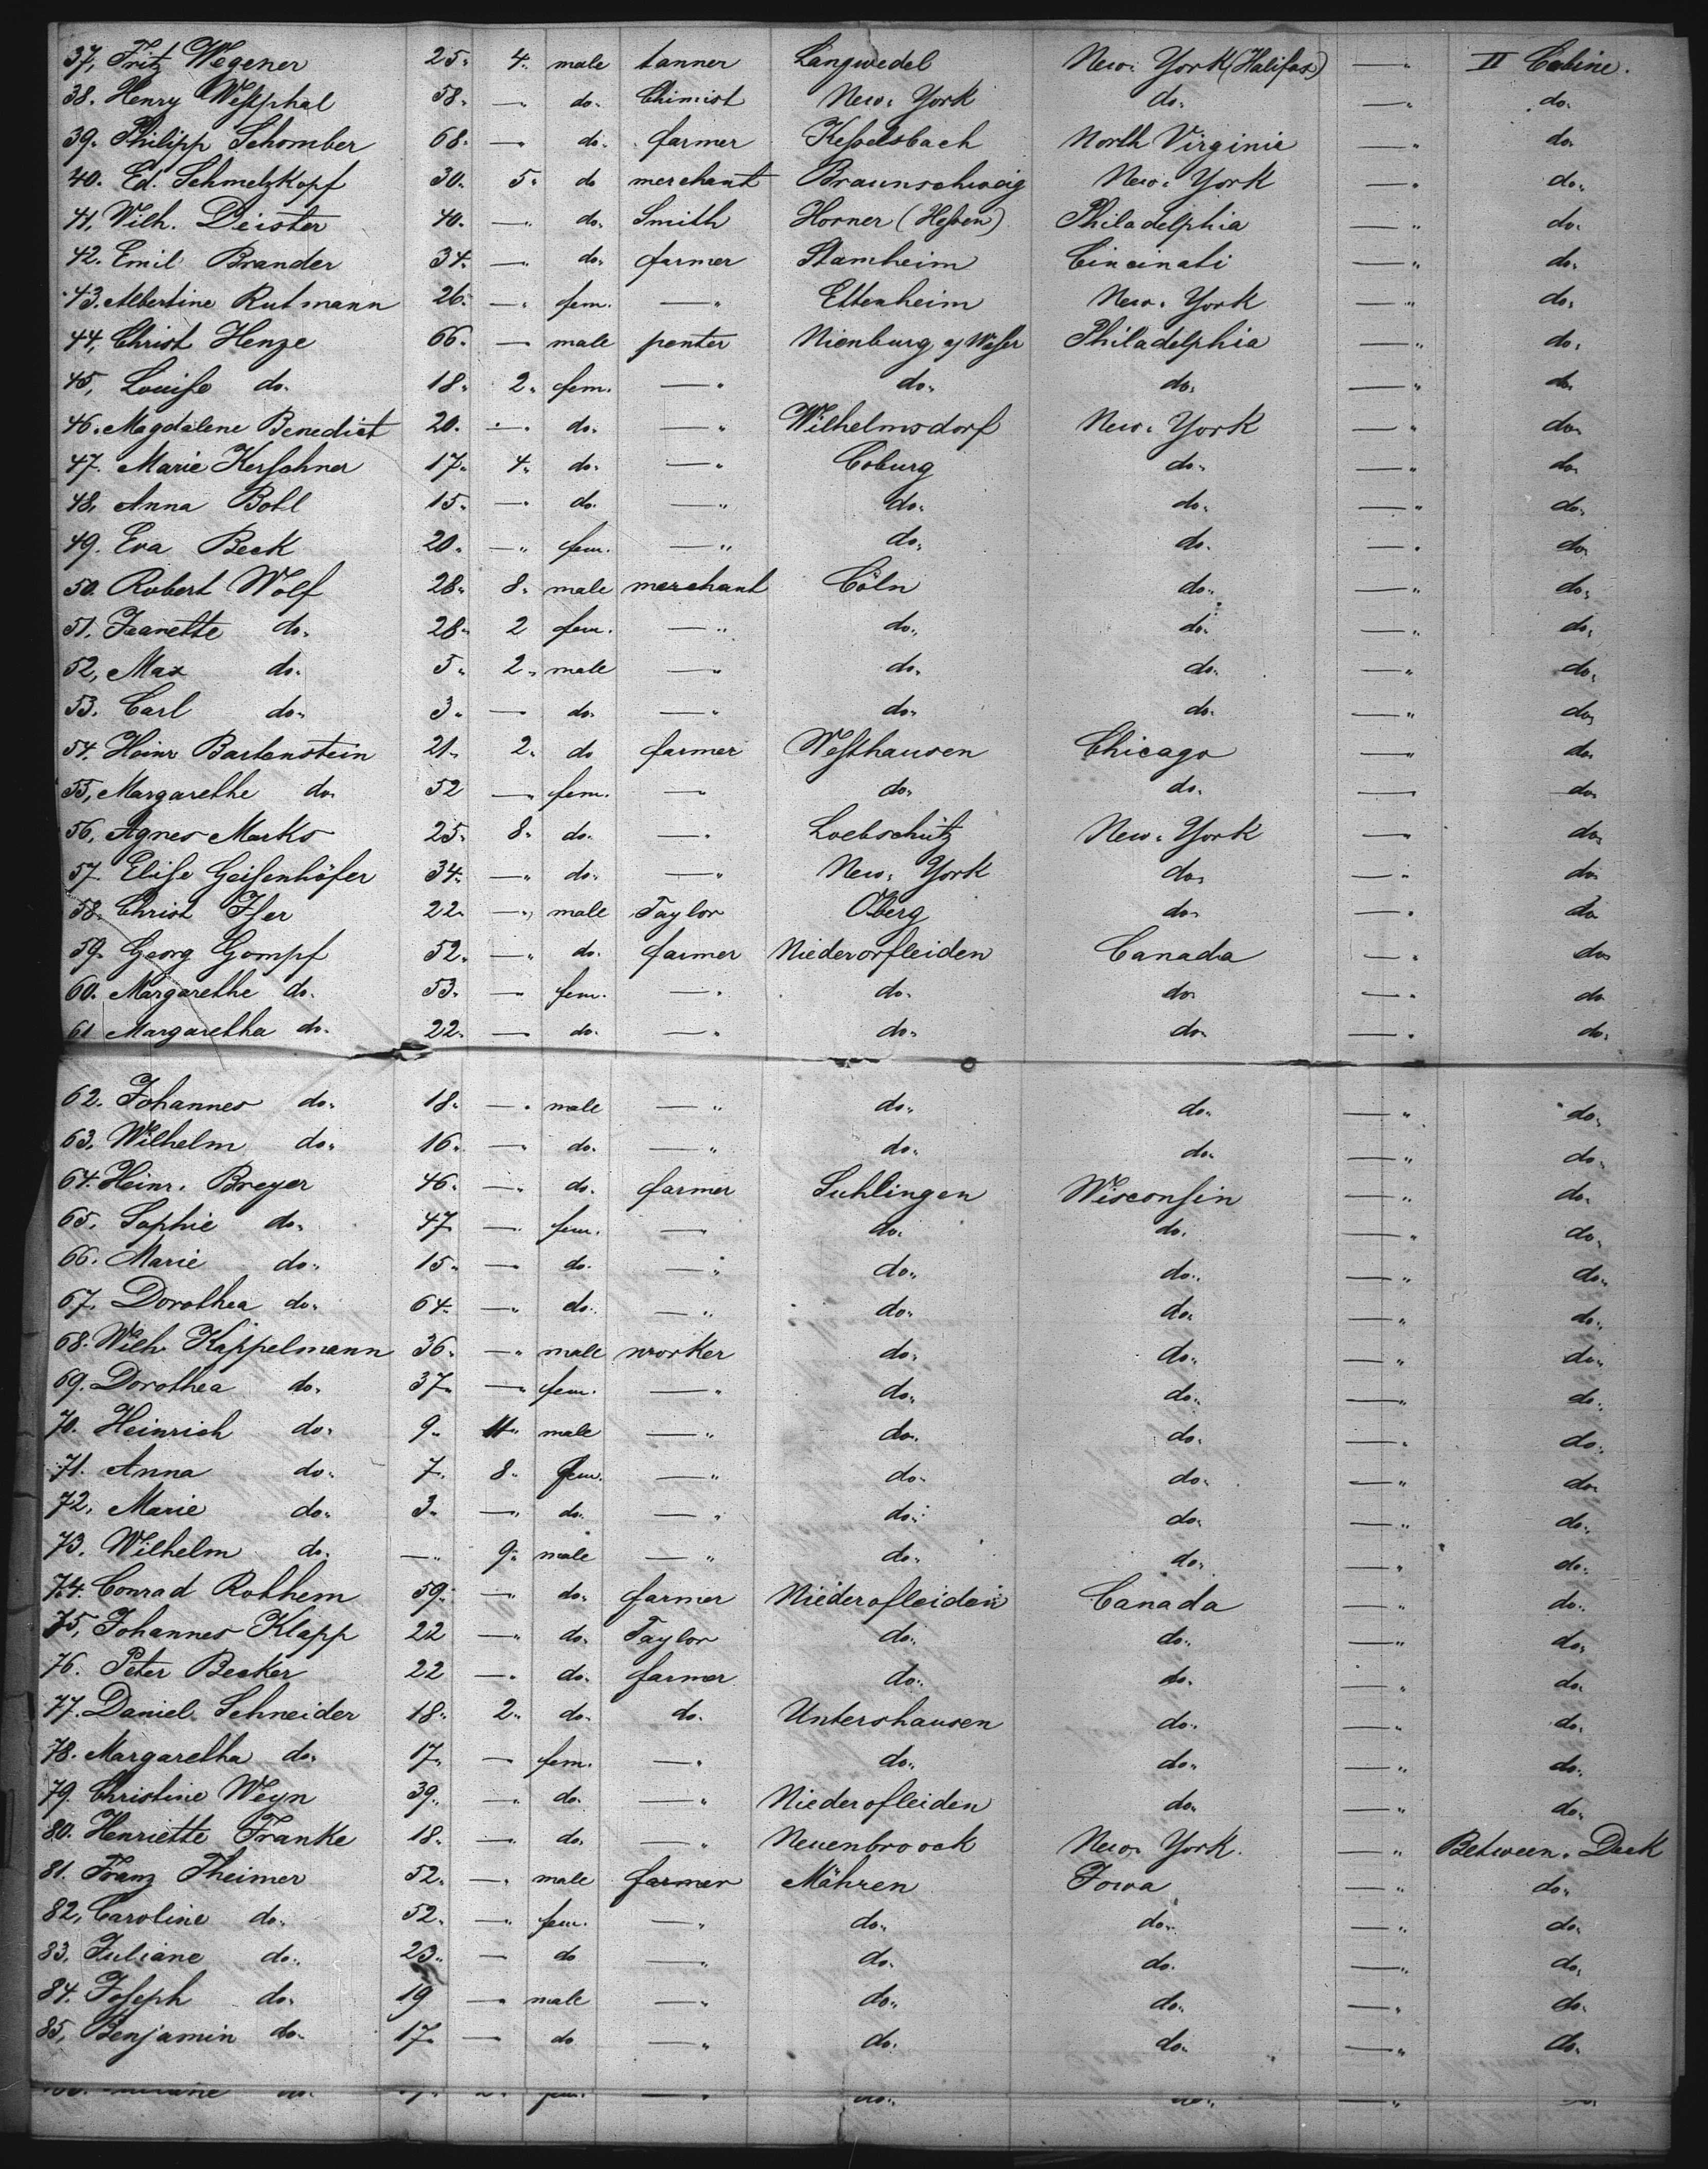 37, Fritz Wegener 25. 4. male tanner Langwedel New-York (Halifax) — " II Cabine.
38. Henry Westphal 58. — do. Chimist New-York do. — " do.
39. Philipp Schomber 68. — do. farmer Kesselsbach North Virginia — " do.
40. Ed. Schmelzkopf 30. 5. do merchant Braunschweig New-York — " do.
41, Wilh. Deister 40. — do. Smith Horner (Hessen) Philadelphia — " do.
42. Emil Brander 34. — do. farmer Stamheim Cincinati — " do.
43. Albertine Rutmann 26. — fem. — " Ettenheim New-York — " do.
44, Christ Henze 66. — male penter Nienburg a/ Weser Philadelphia — " do.
45, Louise do. 18. 2. fem. — " do. do. — " do.
46. Magdalene Benedict 20. — do. — " Wilhelmsdorf New-York — " do.
47. Marie Kerschner 17. 4. do. — " Coburg do. — " do.
48. Anna Bohl 15. — do. — " do. do. — " do.
49. Eva Beck 20. — " fem. — " do. do. — " do.
50. Robert Wolf 28. 8. male merchant Cöln do. — " do.
51. Jeanette do. 28. 2 fem. — " do. do. — " do.
52, Max do. 5. 2. male — " do. do. — " do.
53. Carl do. 3. — do. — " do. do. — " do.
54. Heinr Bartenstein 21. 2. do farmer Westhausen Chicago — " do.
55, Margarethe do. 52 — " fem. — " do. do. — " do.
56, Agnes Marks 25. 8. do. — " Loebschütz New-York — " do.
57. Elise Geisenhöfer 34. — " do. — " New-York do. — " do.
58. Christ Iser 22. — " male Taylor Oberg do. — " do.
59. Georg Gompf 52. — " do. farmer Niederorfleiden Canada — " do.
60. Margarethe do. 53. — fem. — " do. do. — " do.
61 Margaretha do. 22. — do. — " do. do. — " do.
62. Johannes do. 18. — male — " do. do. — " do.
63. Wilhelm do. 16. — do. — " do. do. — " do.
64. Heinr. Breyer 46. — " do. farmer Suhlingen Wisconsin — " do.
65. Sophie do. 47 — fem. — do. do. — " do.
66. Marie do. 15. — do. — " do. do. — " do.
67. Dorothea do. 64. — " do. — " do. do. — " do.
68. Wilh. Kappelmann 36. — " male worker do. do. — " do.
69. Dorothea do. 37. — " fem. — " do. do. — " do.
70. Heinrich do. 9. 11. male — " do. do. — " do.
71. Anna do. 7. 8. fem. — " do. do. — " do.
72, Marie do. 3. — " do. — " do. do. — " do.
73. Wilhelm do. — " 9. male — " do. do. — " do.
74. Conrad Rothem 59. — " do. farmer Niederofleiden Canada — " do.
75, Johannes Klapp 22 — " do. Taylor do. do. — " do.
76. Peter Becker 22 — do. farmer do. do. — " do.
77. Daniel Schneider 18. 2. do. do. Untershausen do. — " do.
78. Margaretha do. 17. — fem. — " do. do. — " do.
79. Christine Weyn 39. — " do. — " Niederofleiden do. — " do.
80. Henriette Franke 18. — do. — " Neuenbroock New-York. — " Between-Deck
81. Franz Theimer 52. — " male farmer Mähren Iowa — " do.
82, Caroline do. 52. — " fem. — " do. do. — " do.
83. Juliane do. 23. — do — " do. do. — " do.
84. Joseph do. 19 — male — " do. do. — " do.
85, Benjamin do. 17. — do — " do. do. — " do.